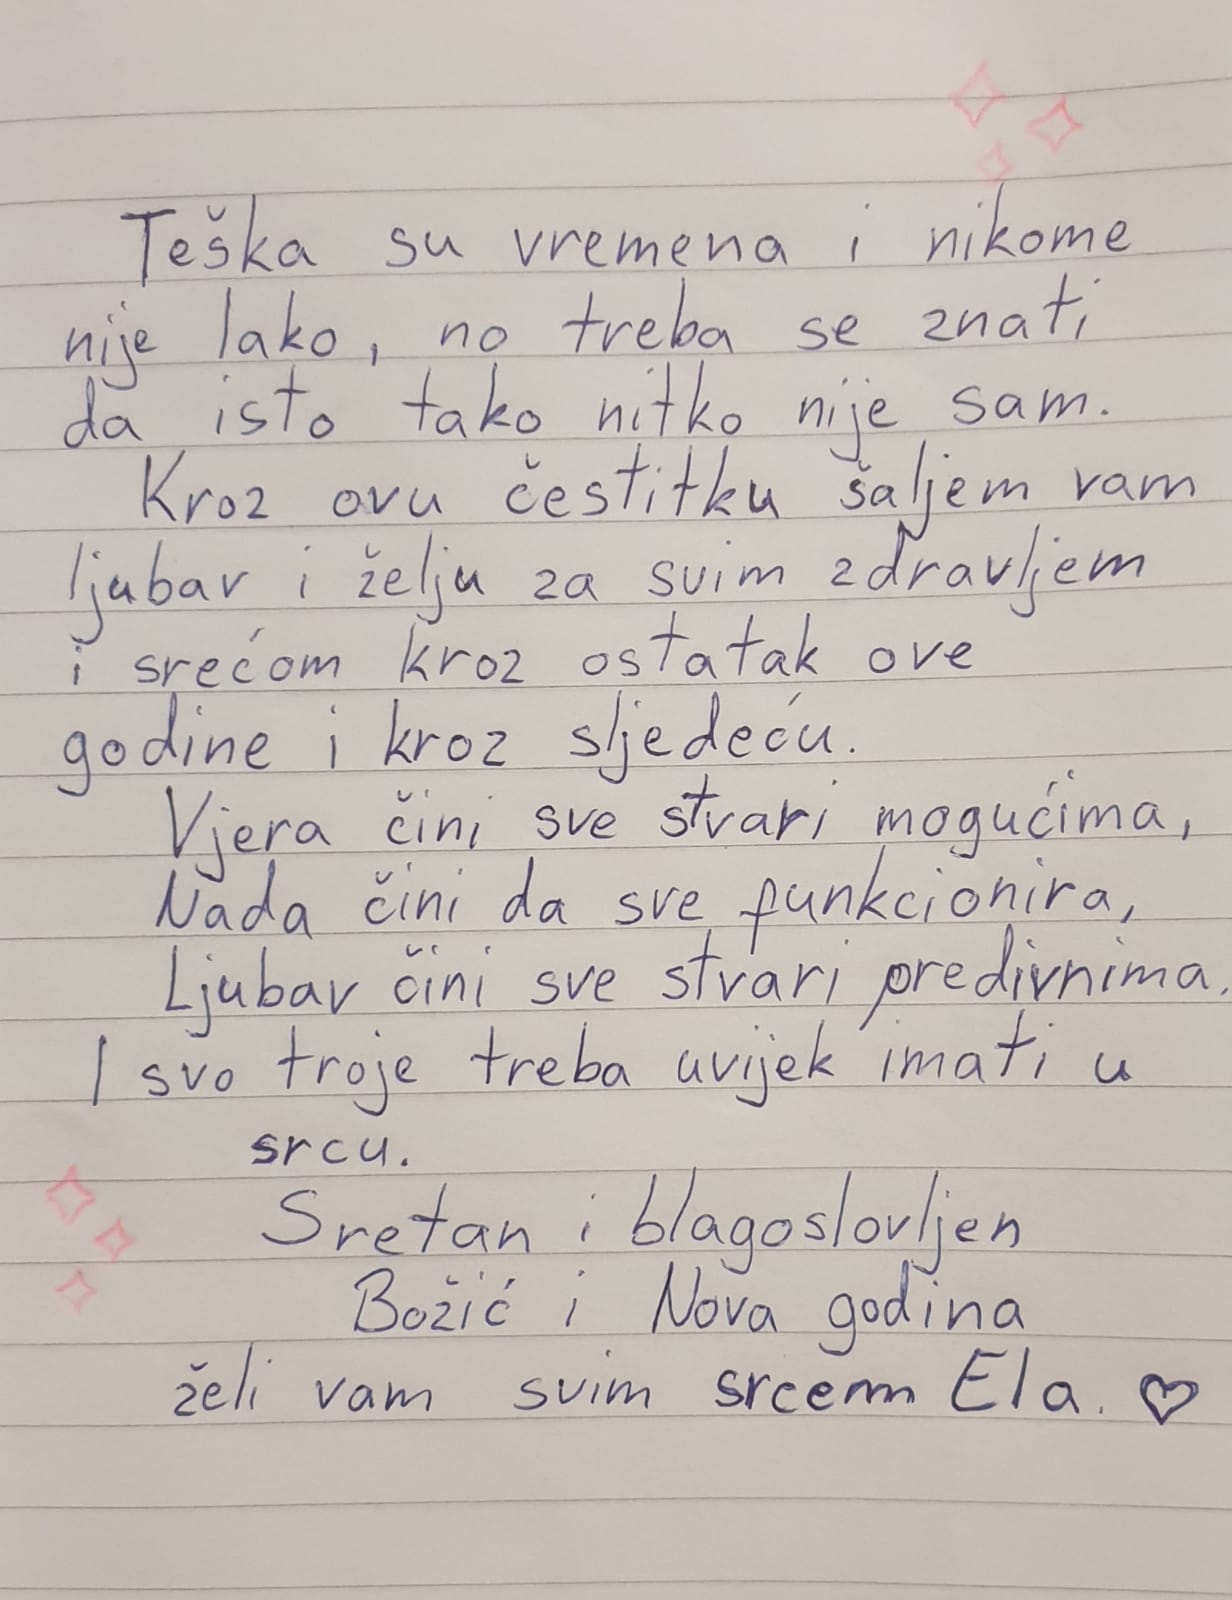 Teška su vremena i nikome
nije lako, no treba se znati
da isto tako nitko nije sam.
Kroz ovu čestitku šaljem vam
ljubav i želju za svim zdravljem
i srećom kroz ostatak ove
godine i kroz sljedeću.
Vjera čini sve stvari mogućima,
Nada čini da sve funkcionira,
Ljubav čini sve stvari predivnima.
I svo troje treba uvijek imati u
srcu.
Sretan i blagoslovljen
Božić i Nova godina
želi vam svim srcem Ela. ♡